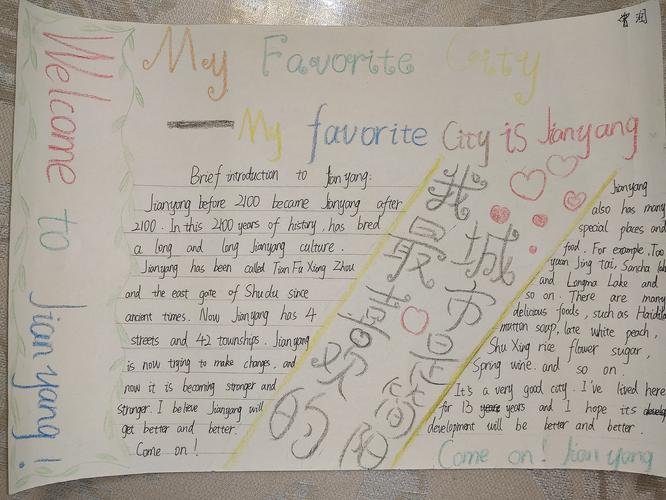 Welcome to Jianyang!
My Favorite City
— My favorite City is Jianyang
Brief introduction to Jianyang:
Jianyang before 2100 became Jianyang after
2100. In this 2100 years of history, has bred
a long and long Jianyang culture.
Jianyang has been called Tian Fu Xiong Zhou
and the east gate of Shudu since
ancient times. Now Jianyang has 4
streets and 42 townships. Jianyang
is now trying to make changes, and
now it is becoming stronger and
stronger. I believe Jianyang will
get better and better.
Come on!
我最喜欢的
城市是简阳
Jianyang
also has many
special places and
food. For example, Tao
yuan Jing tai, Sancha lake
and Longma Lake and
so on. There are many
delicious foods, such as Haidilao
mutton soup, late white peach,
Shu Xing rice flower sugar,
Spring wine. and so on.
It's a very good city. I've lived here
for 13 years and I hope its
development will be better and better.
Come on! Jianyang